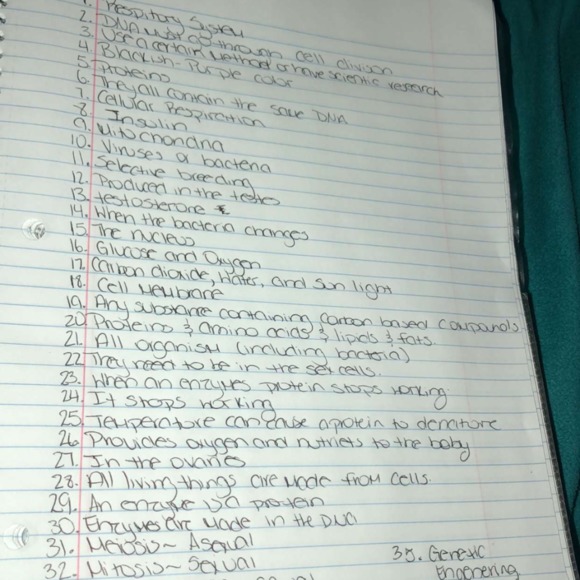 1. Respitory System
2. DNA must go through cell divison
3. Use a certain method or have scientic research
4. Blackish-Purple color
5. Proteins
6. They all contain the same DNA
7. Cellular Respiration
8. Insulin
9. Mitochondria
10. Viruses or bacteria
11. Selective breeding
12. Produced in the testes
13. testosterone
14. When the bacteria changes
15. The nucleus
16. Glucose and Oxygen
17. Carbon dioxide, Water, and Sun light
18. Cell Membrane
19. Any substance containing Carbon based compounds.
20. Proteins & amino acids & lipids & fats.
21. All organism (including bacteria)
22. They need to be in the sex cells.
23. When an enzymes protein stops working.
24. It stops working
25. Temperature can cause a protein to denature
26. Provides oxygen and nutriets to the baby
27. In the ovaries
28. All living things are made from cells.
29. An enzyme is a protein
30. Enzymes are made in the DNA
31. Meiosis~ Asexual
32. Mitosis~ Sexual
35. Genetic
Engenering